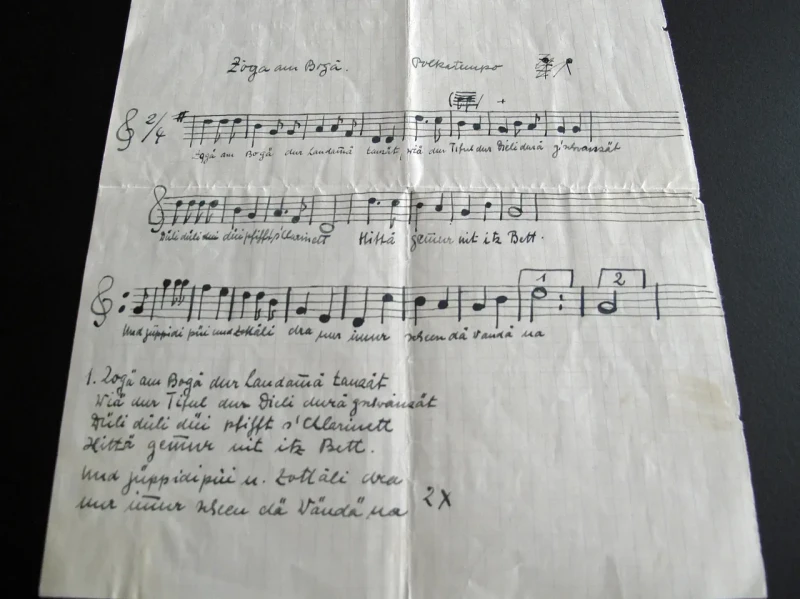 Zoga am Bogä. Polkatempo
2/4
Zogä am Bogä dur Landamä tanzät, wiä dur Tiful dur Dieli durä
Düli düli düi düi pfifft s'Clarinett Hittä gem̄ur nit itz Bett.
1 2
Und jüppidi püi und Zottäli dra nur im̄ur scheen dä Vändä na
1. Zogä am Bogä dur Landam̄ä tanzät
Wiä dur Tiful dur Dieli durä
Düli düli düi pfifft s'Clarinett
Hittä gem̄ur nit itz Bett.
Und jüppidipüi u. Zottäli dra
nur im̄ur scheen dä Vändä na 2X